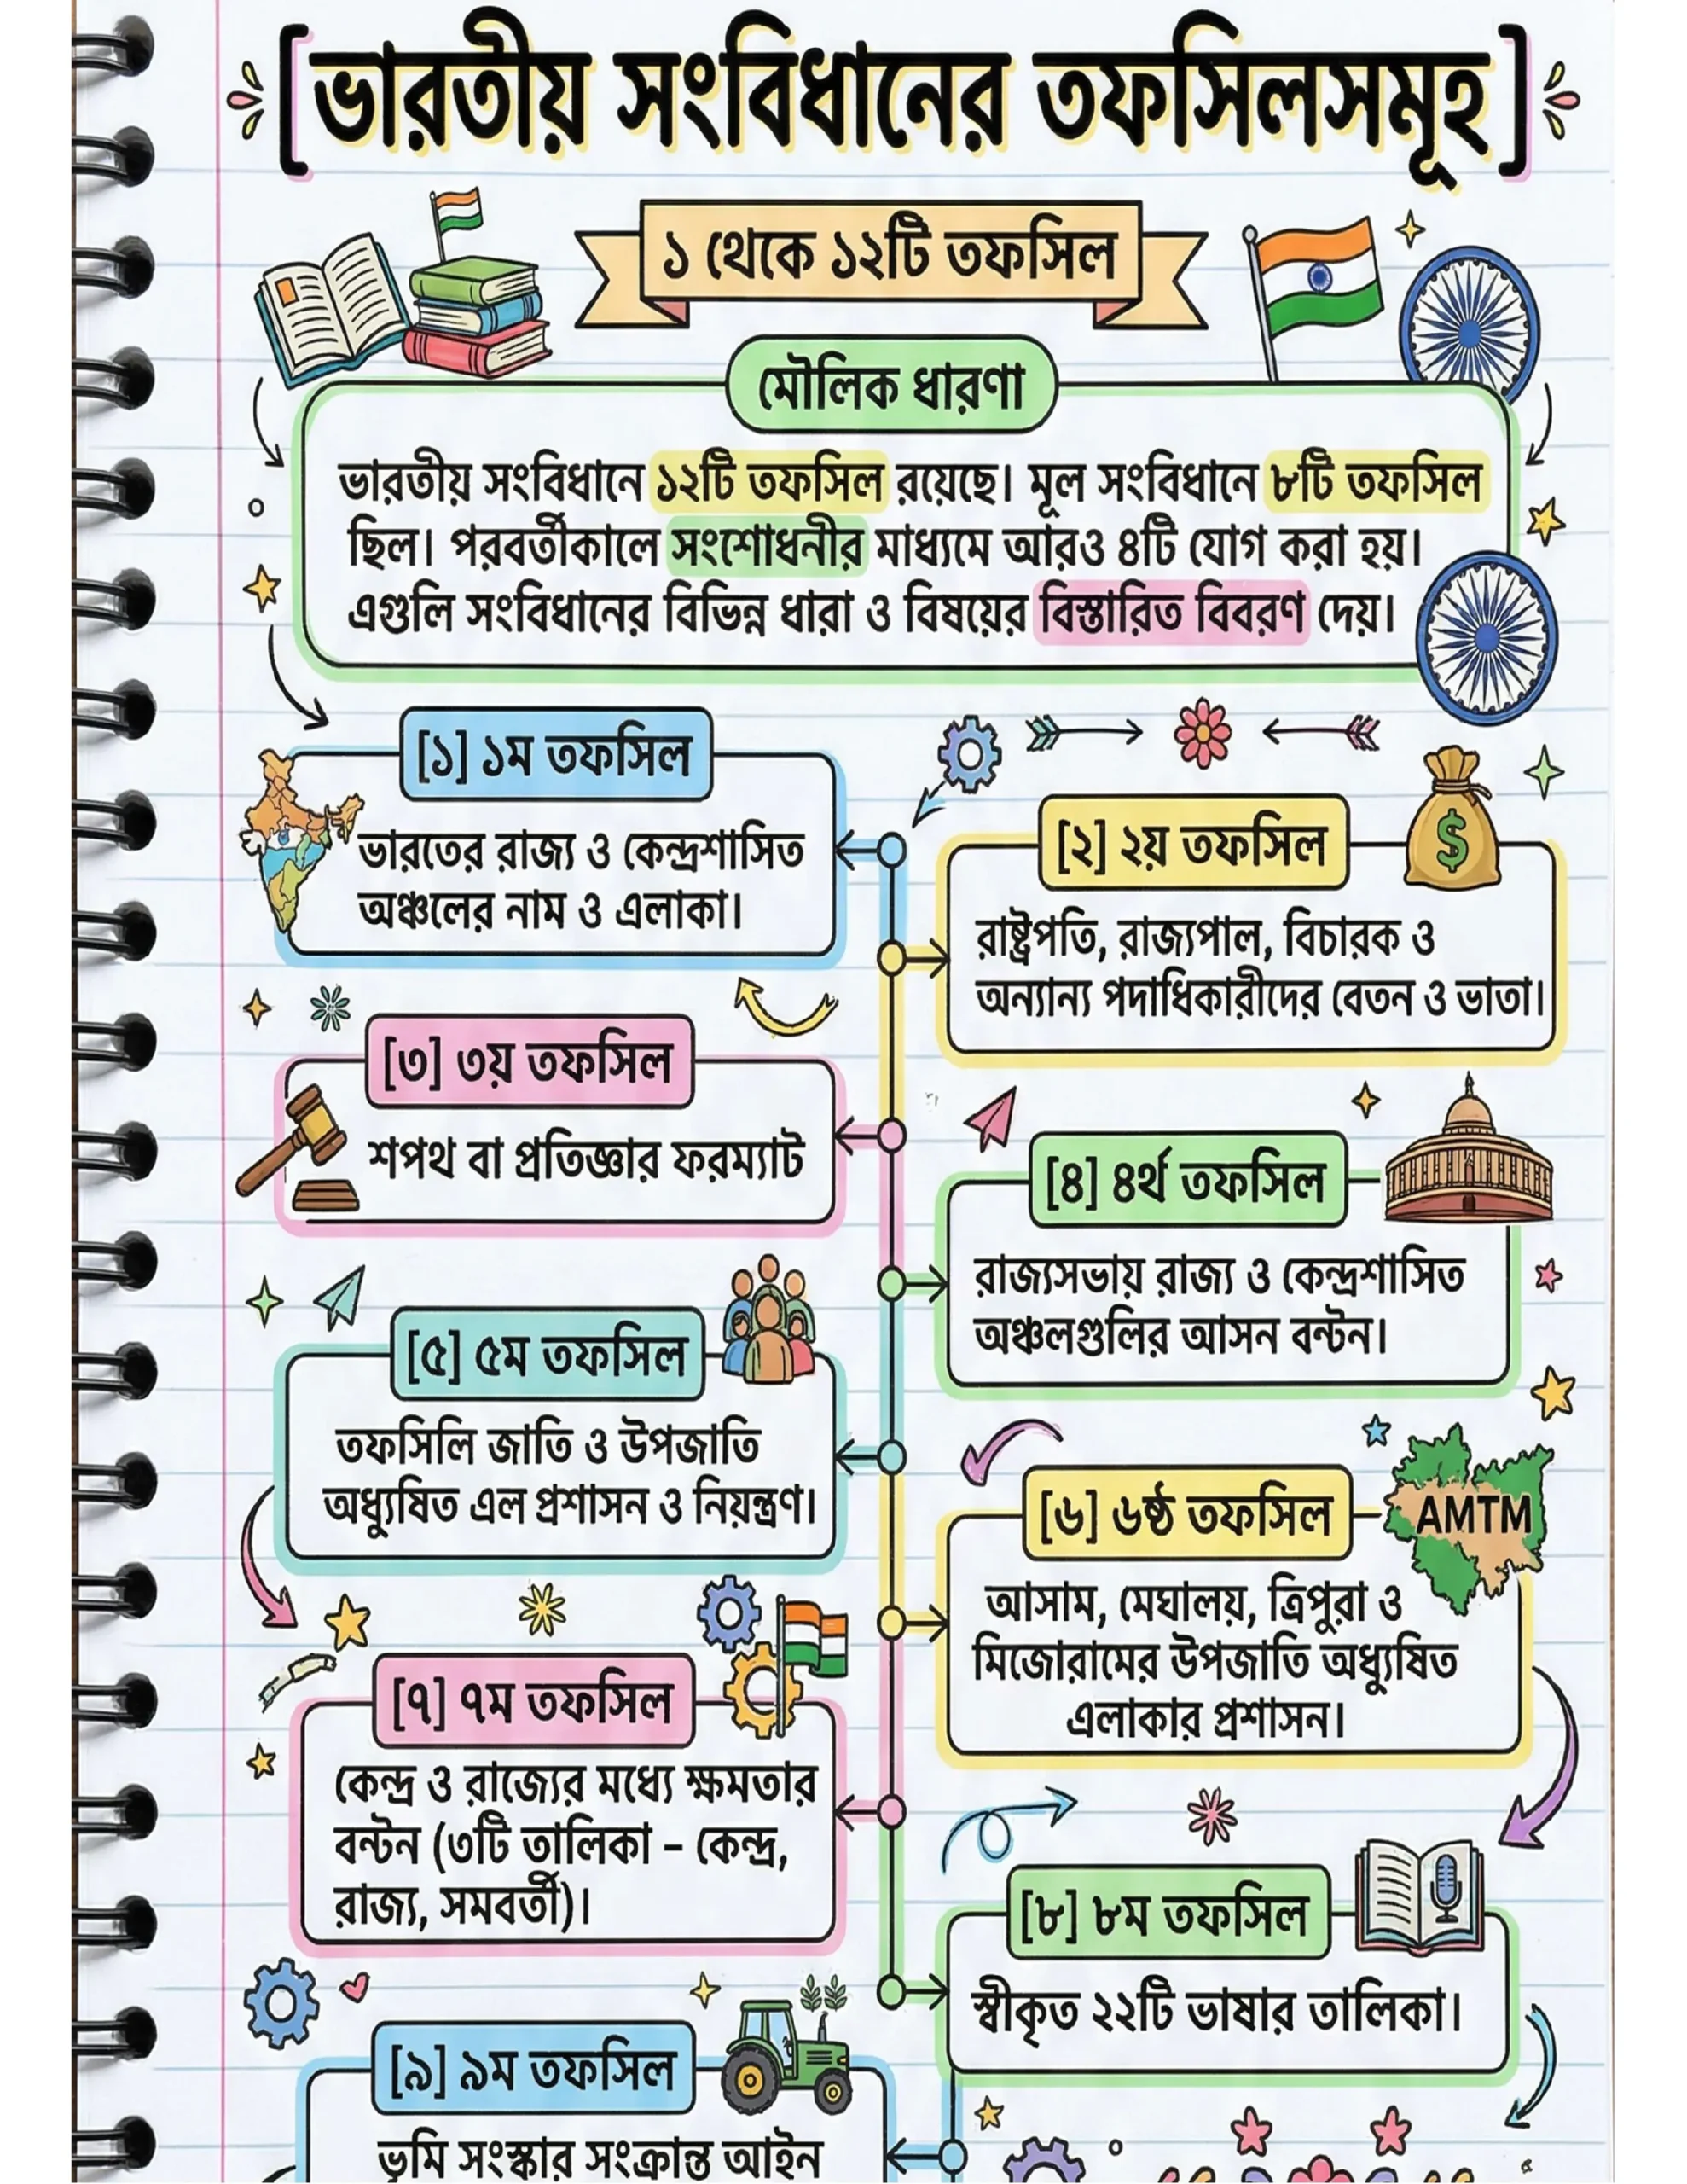 [ভারতীয় সংবিধানের তফসিলসমূহ]
১ থেকে ১২টি তফসিল
মৌলিক ধারণা
ভারতীয় সংবিধানে ১২টি তফসিল রয়েছে। মূল সংবিধানে ৮টি তফসিল
ছিল। পরবর্তীকালে সংশোধনীর মাধ্যমে আরও ৪টি যোগ করা হয়।
এগুলি সংবিধানের বিভিন্ন ধারা ও বিষয়ের বিস্তারিত বিবরণ দেয়।
[১] ১ম তফসিল
ভারতের রাজ্য ও কেন্দ্রশাসিত
অঞ্চলের নাম ও এলাকা।
[২] ২য় তফসিল
$
রাষ্ট্রপতি, রাজ্যপাল, বিচারক ও
অন্যান্য পদাধিকারীদের বেতন ও ভাতা।
[৩] ৩য় তফসিল
শপথ বা প্রতিজ্ঞার ফরম্যাট
[৪] ৪র্থ তফসিল
রাজ্যসভায় রাজ্য ও কেন্দ্রশাসিত
অঞ্চলগুলির আসন বন্টন।
[৫] ৫ম তফসিল
তফসিলি জাতি ও উপজাতি
অধ্যুষিত এল প্রশাসন ও নিয়ন্ত্রণ।
[৬] ৬ষ্ঠ তফসিল
AMTM
আসাম, মেঘালয়, ত্রিপুরা ও
মিজোরামের উপজাতি অধ্যুষিত
এলাকার প্রশাসন।
[৭] ৭ম তফসিল
কেন্দ্র ও রাজ্যের মধ্যে ক্ষমতার
বন্টন (৩টি তালিকা – কেন্দ্র,
রাজ্য, সমবর্তী)।
[৮] ৮ম তফসিল
স্বীকৃত ২২টি ভাষার তালিকা।
[৯] ৯ম তফসিল
ভূমি সংস্কার সংক্রান্ত আইন